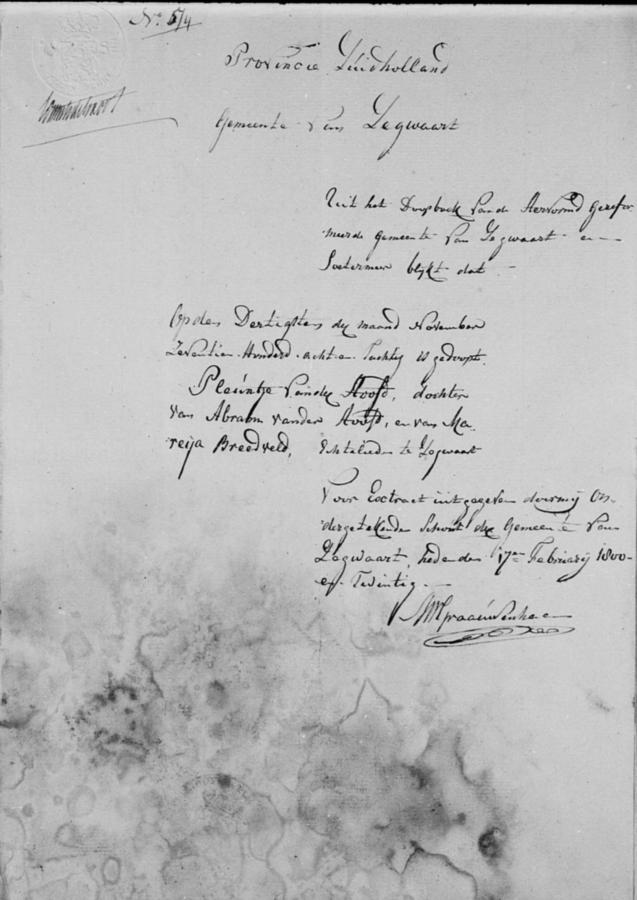 No. 5/4
Provincie Zuidholland
Gemeente van Zegwaart
Uit het Doopboek van de Hervormd Gerefor
meerde Gemeente van Zegwaart en
Soetermeer blijkt dat
Op den Dertigsten der maand November
Zeventien Honderd acht en Tachtig is gedoopt.
Pleuntje van der Hoofd, dochter
van Abraam van der Hoofd, en van Ma
reija Breedveld, Echtelieden te Zegwaart
Voor Extract uitgegeven door mij On
dergetekende Schout der Gemeente van
Zegwaart, heden den 17en Februarij 1800
en Twintig